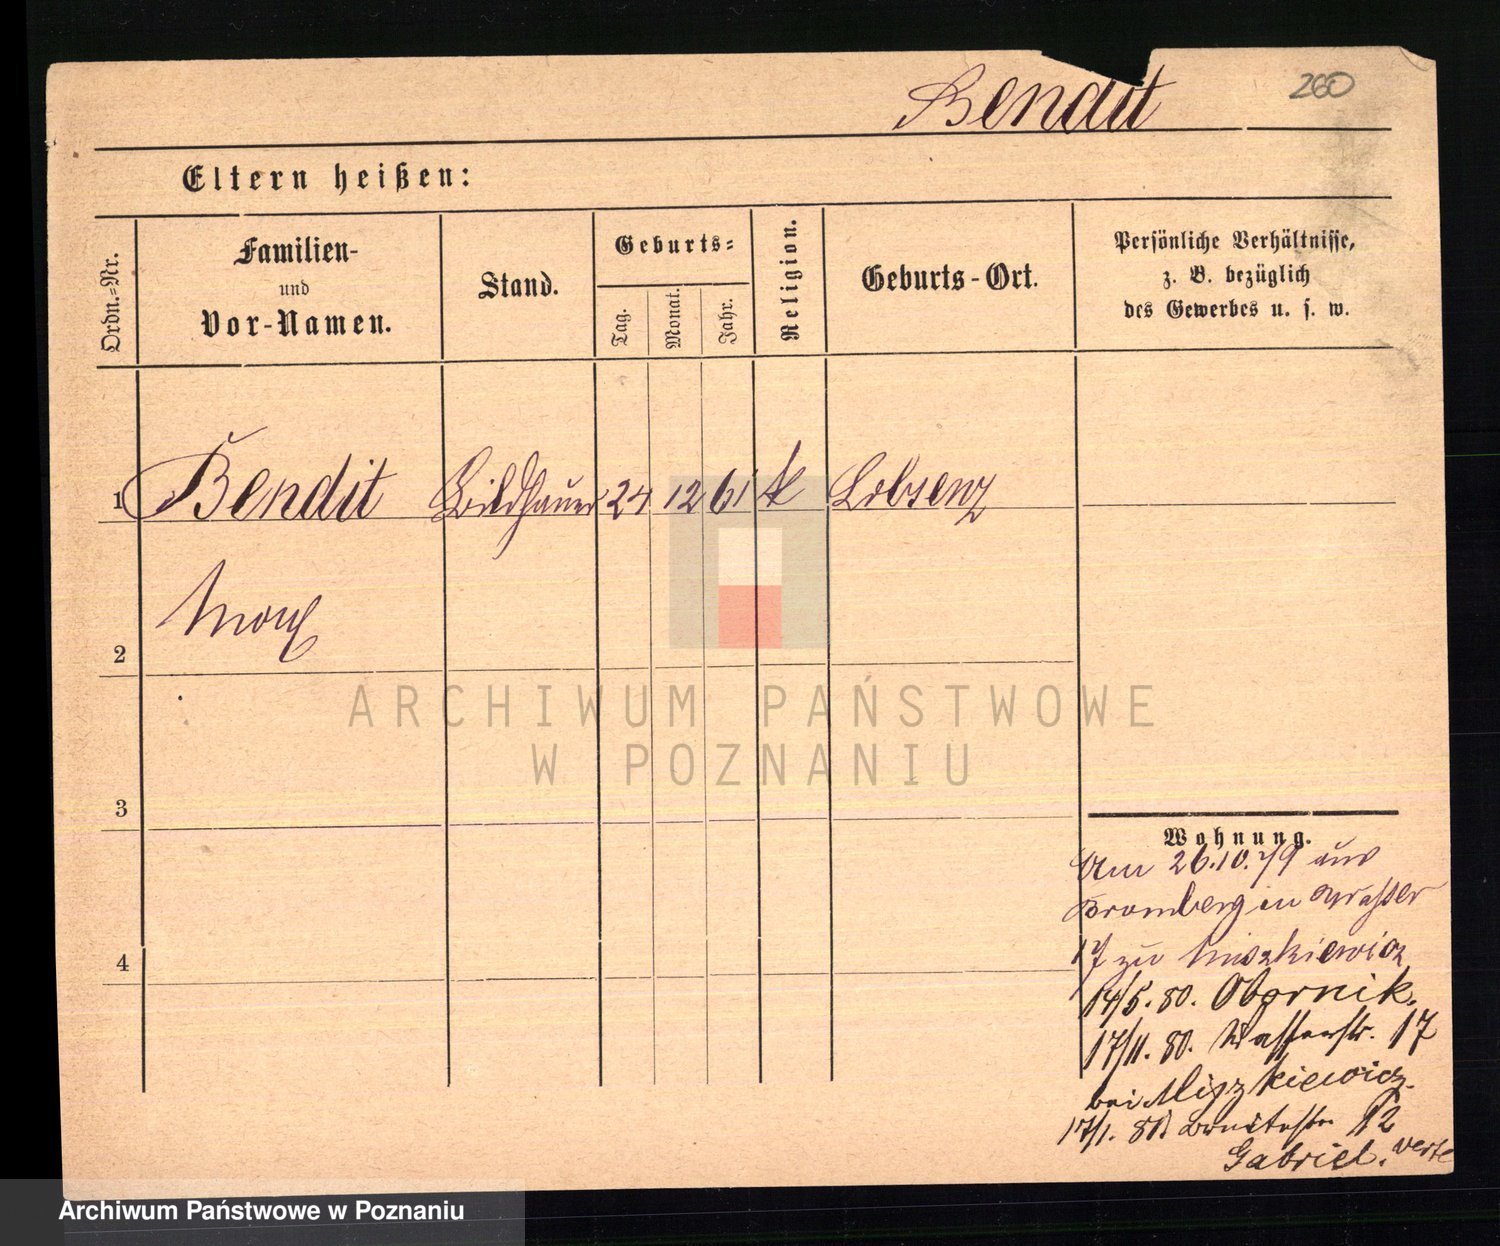 Bendit
260
Eltern heißen:
Ordn.=Nr.
Familien-
und
Vor-Namen.
Stand.
Geburts=
Tag.
Monat.
Jahr.
Religion.
Geburts-Ort.
Persönliche Verhältnisse,
z. B. bezüglich
des Gewerbes u. s. w.
1 Bendit Bildhauer 24 12 61 k Lobsenz
Max
2
3
4
Wohnung.
Am 26.10.79 aus
Bromberg in Wasser
17 zu Miszkiewicz
14/5. 80. Obornik.
17/11. 80. Wasserstr. 17
bei Miszkiewicz.
17/1. 81. Breitestr 12
Gabriel. verte
ARCHIWUM PAŃSTWOWE
W POZNANIU
Archiwum Państwowe w Poznaniu